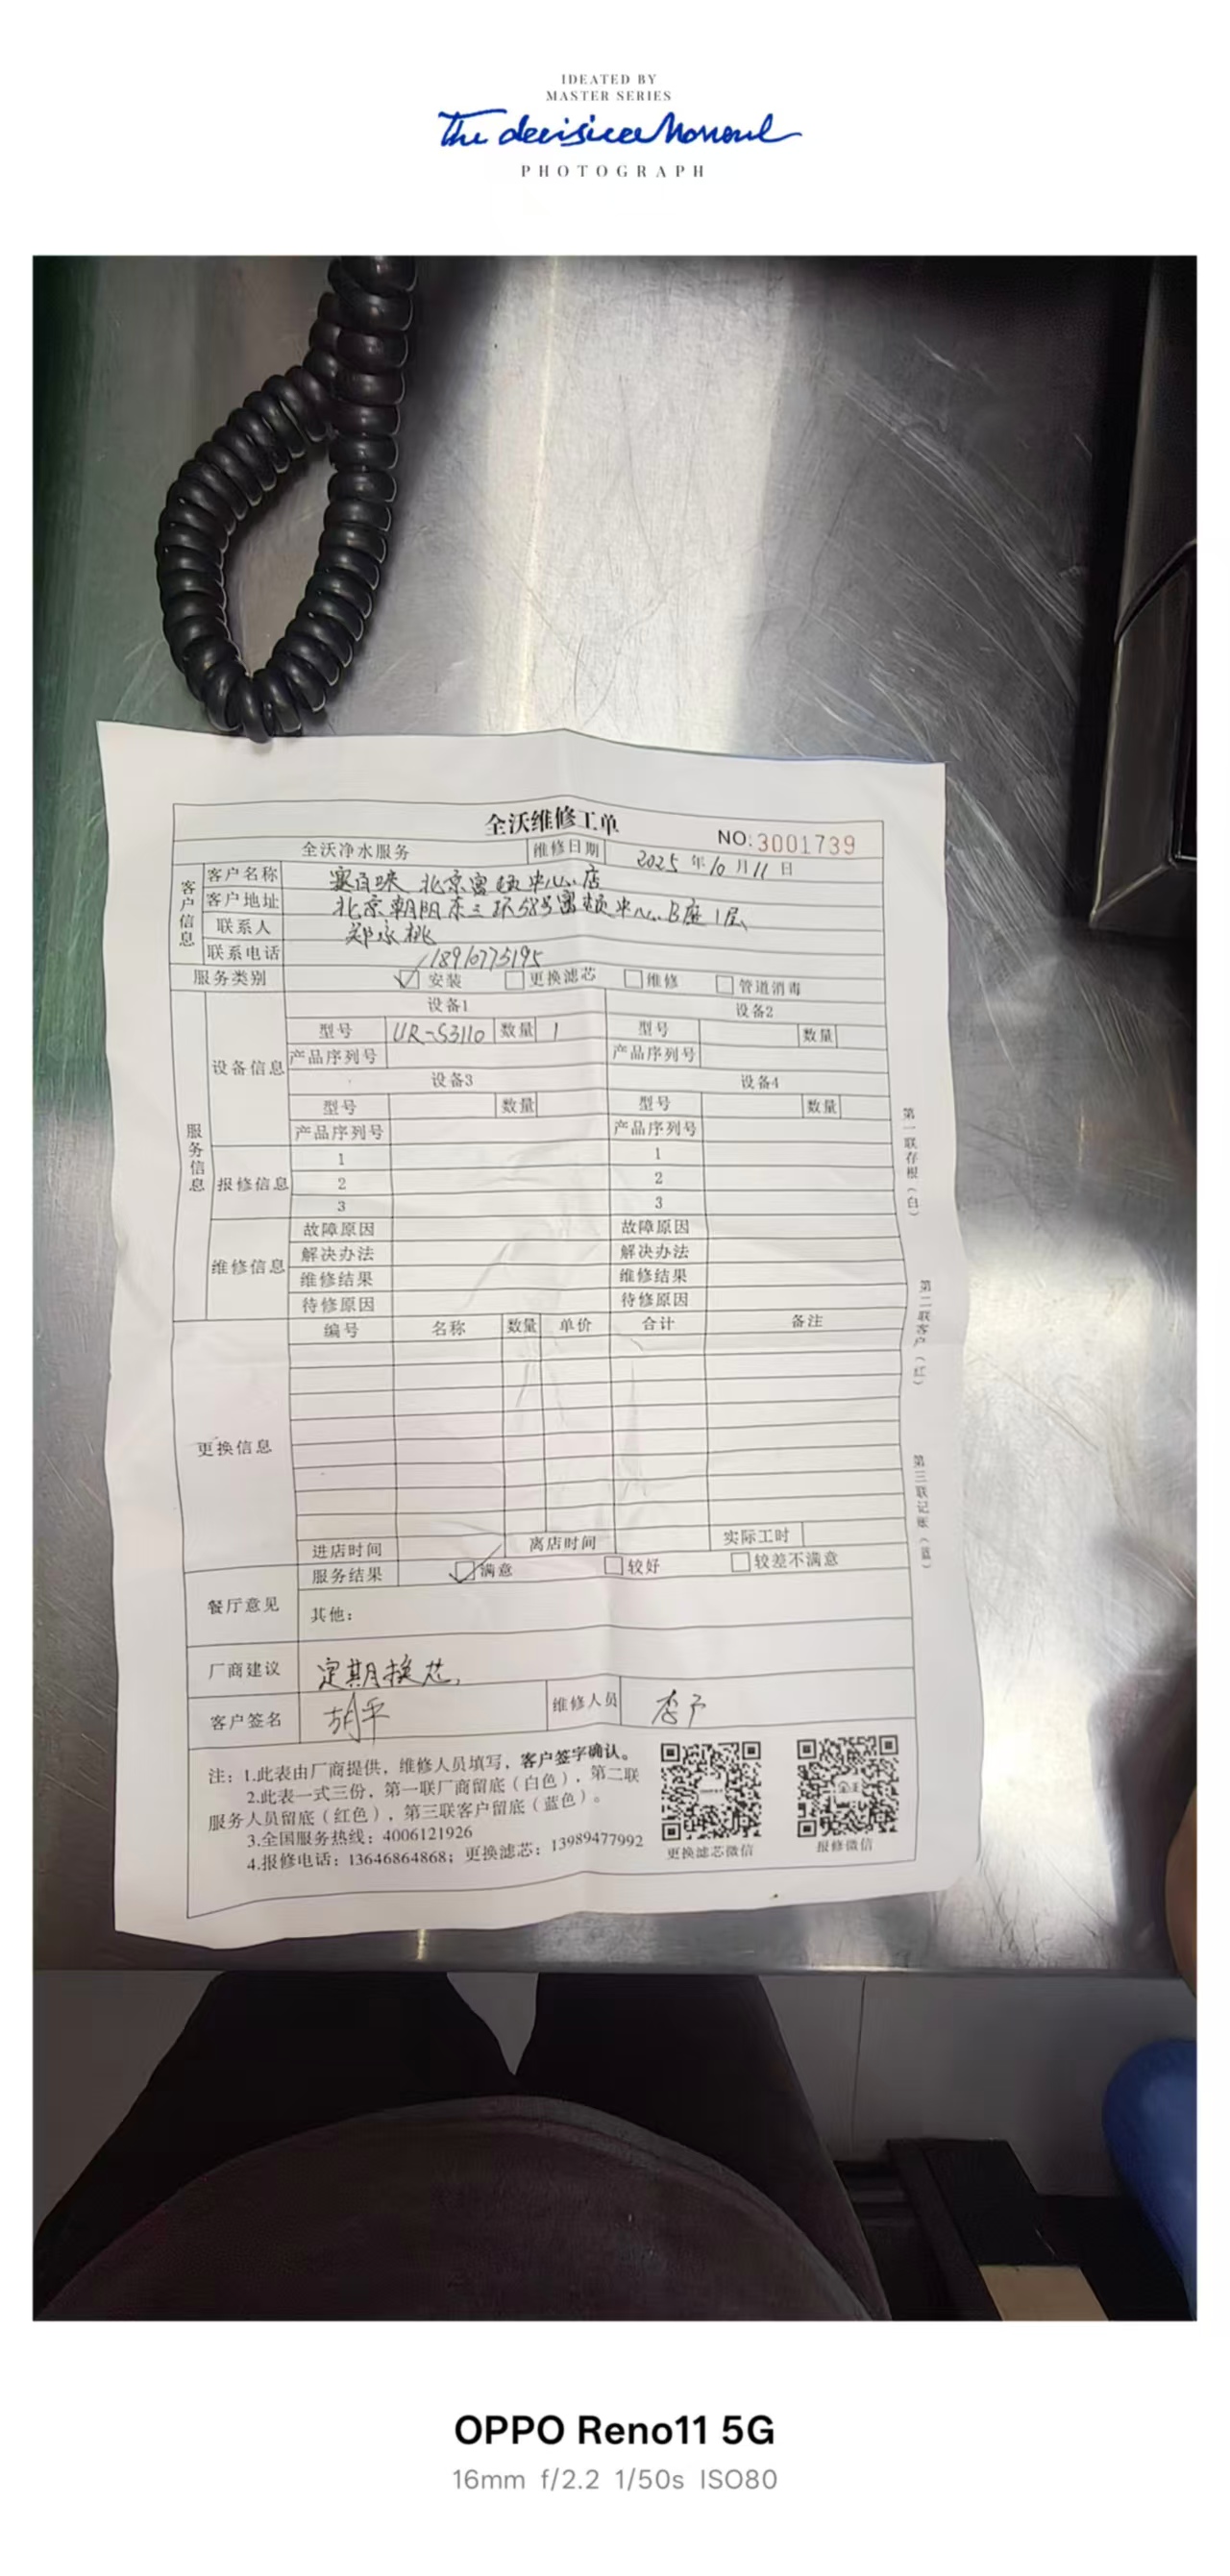 IDEATED BY
MASTER SERIES
PHOTOGRAPH
全沃维修工单
NO:3001739
全沃净水服务 维修日期 2025年10月11日
客户信息
客户名称 北京 中心店
客户地址 北京朝阳东三环58号富顿中心B座1层
联系人 郑
联系电话 18916775195
服务类别 安装 更换滤芯 维修 管道消毒
服务信息
设备信息
设备1 设备2
型号 UR-S3110 数量 1 型号 数量
产品序列号 产品序列号
设备3 设备4
型号 数量 型号 数量
产品序列号 产品序列号
报修信息
1 1
2 2
3 3
维修信息
故障原因 故障原因
解决办法 解决办法
维修结果 维修结果
待修原因 待修原因
更换信息
编号 名称 数量 单价 合计 备注
进店时间 离店时间 实际工时
餐厅意见
服务结果 满意 较好 较差不满意
其他:
厂商建议 定期换芯
客户签名 胡平 维修人员 李
注:1.此表由厂商提供,维修人员填写,客户签字确认。
2.此表一式三份,第一联厂商留底(白色),第二联
服务人员留底(红色),第三联客户留底(蓝色)。
3.全国服务热线:4006121926
4.报修电话:13646864868;更换滤芯:13989477992
更换滤芯微信 报修微信
第一联存根(白)
第二联客户(红)
第三联记账(蓝)
OPPO Reno11 5G
16mm f/2.2 1/50s ISO80